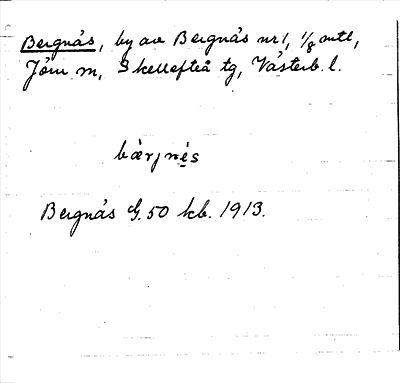 Bergnäs, by av Bergnäs nr 1, 1/8 mtl,
Jörn sn, Skellefteå tg, Västerb. l.
bærjnės
Bergnäs G. 50 kb. 1913.